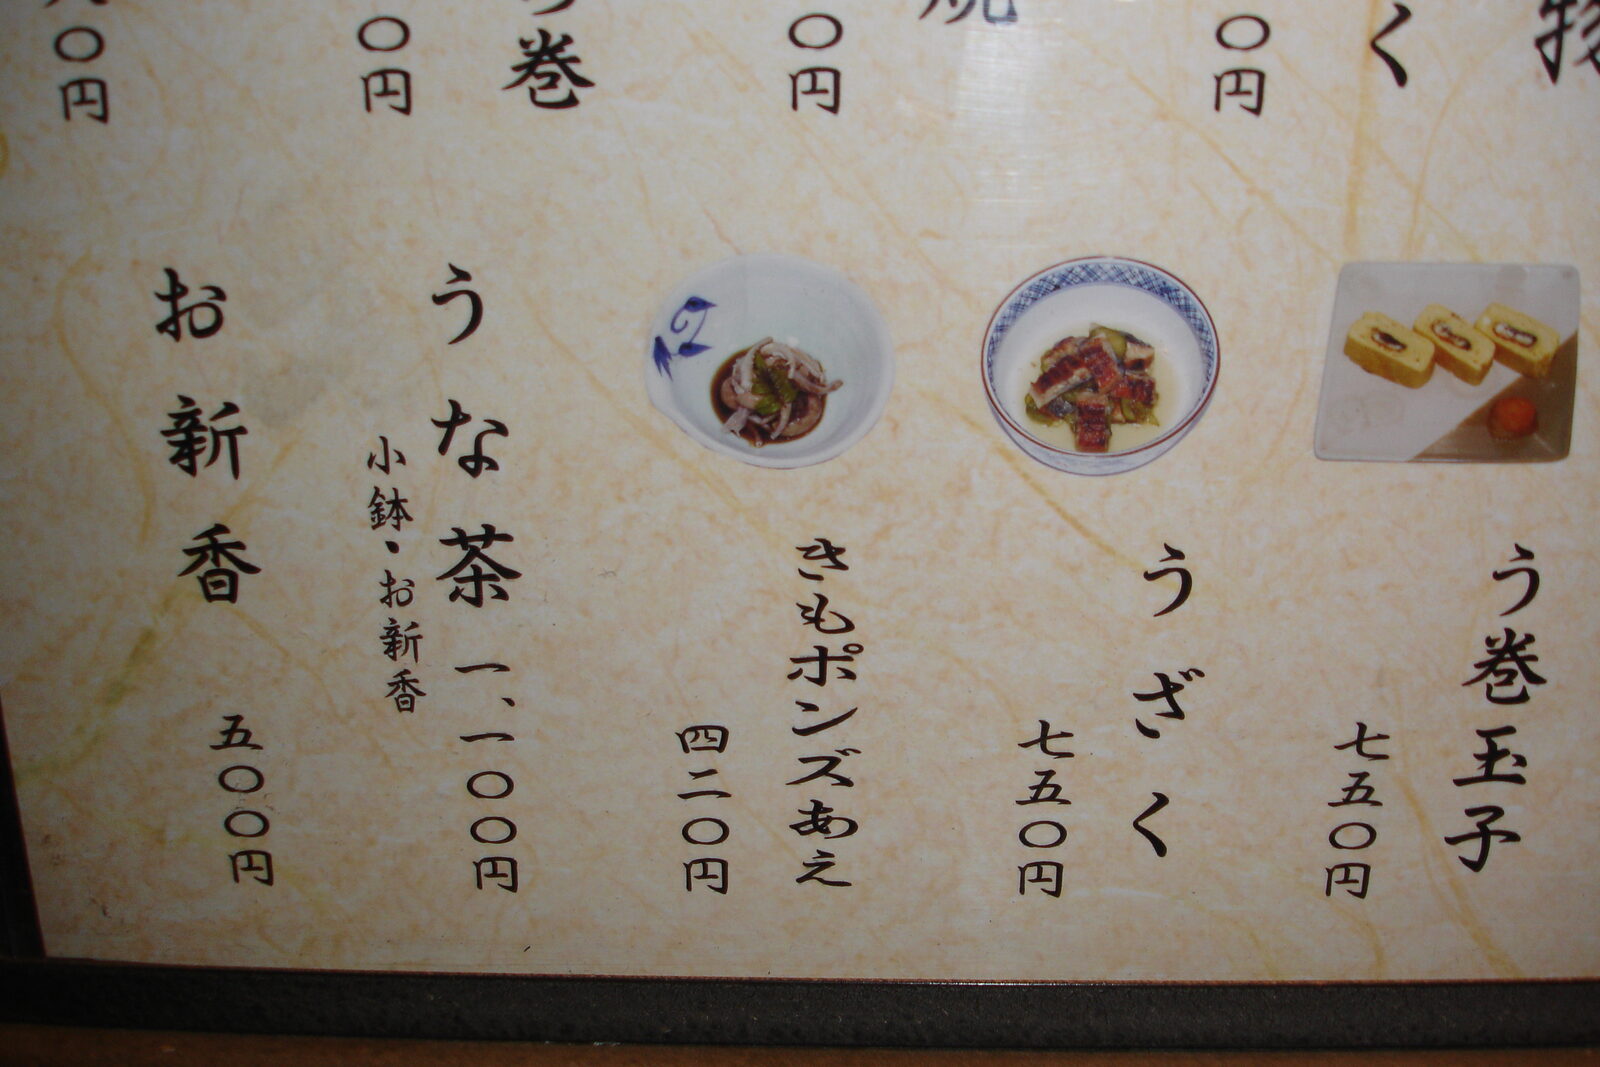 く
〇円
〇円
巻
〇円
〇円
う巻玉子
七五〇円
うざく
七五〇円
きもポンズあえ
四二〇円
うな茶 一、一〇〇円
小鉢・お新香
お新香
五〇〇円